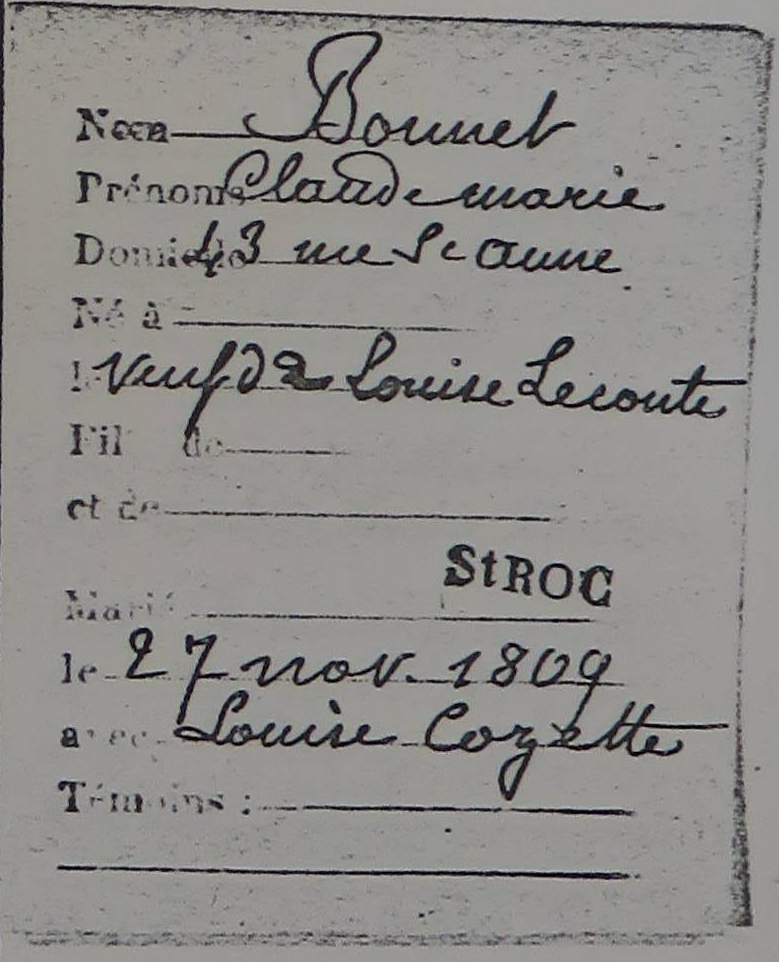 Nom Bonnet
Prénoms Claude marie
Domicile 43 rue Ste Anne
Né à
le veuf de Louise Leconte
Fil de
et de
St ROC
Marié
le 27 nov. 1809
avec Louise Cozette
Témoins :